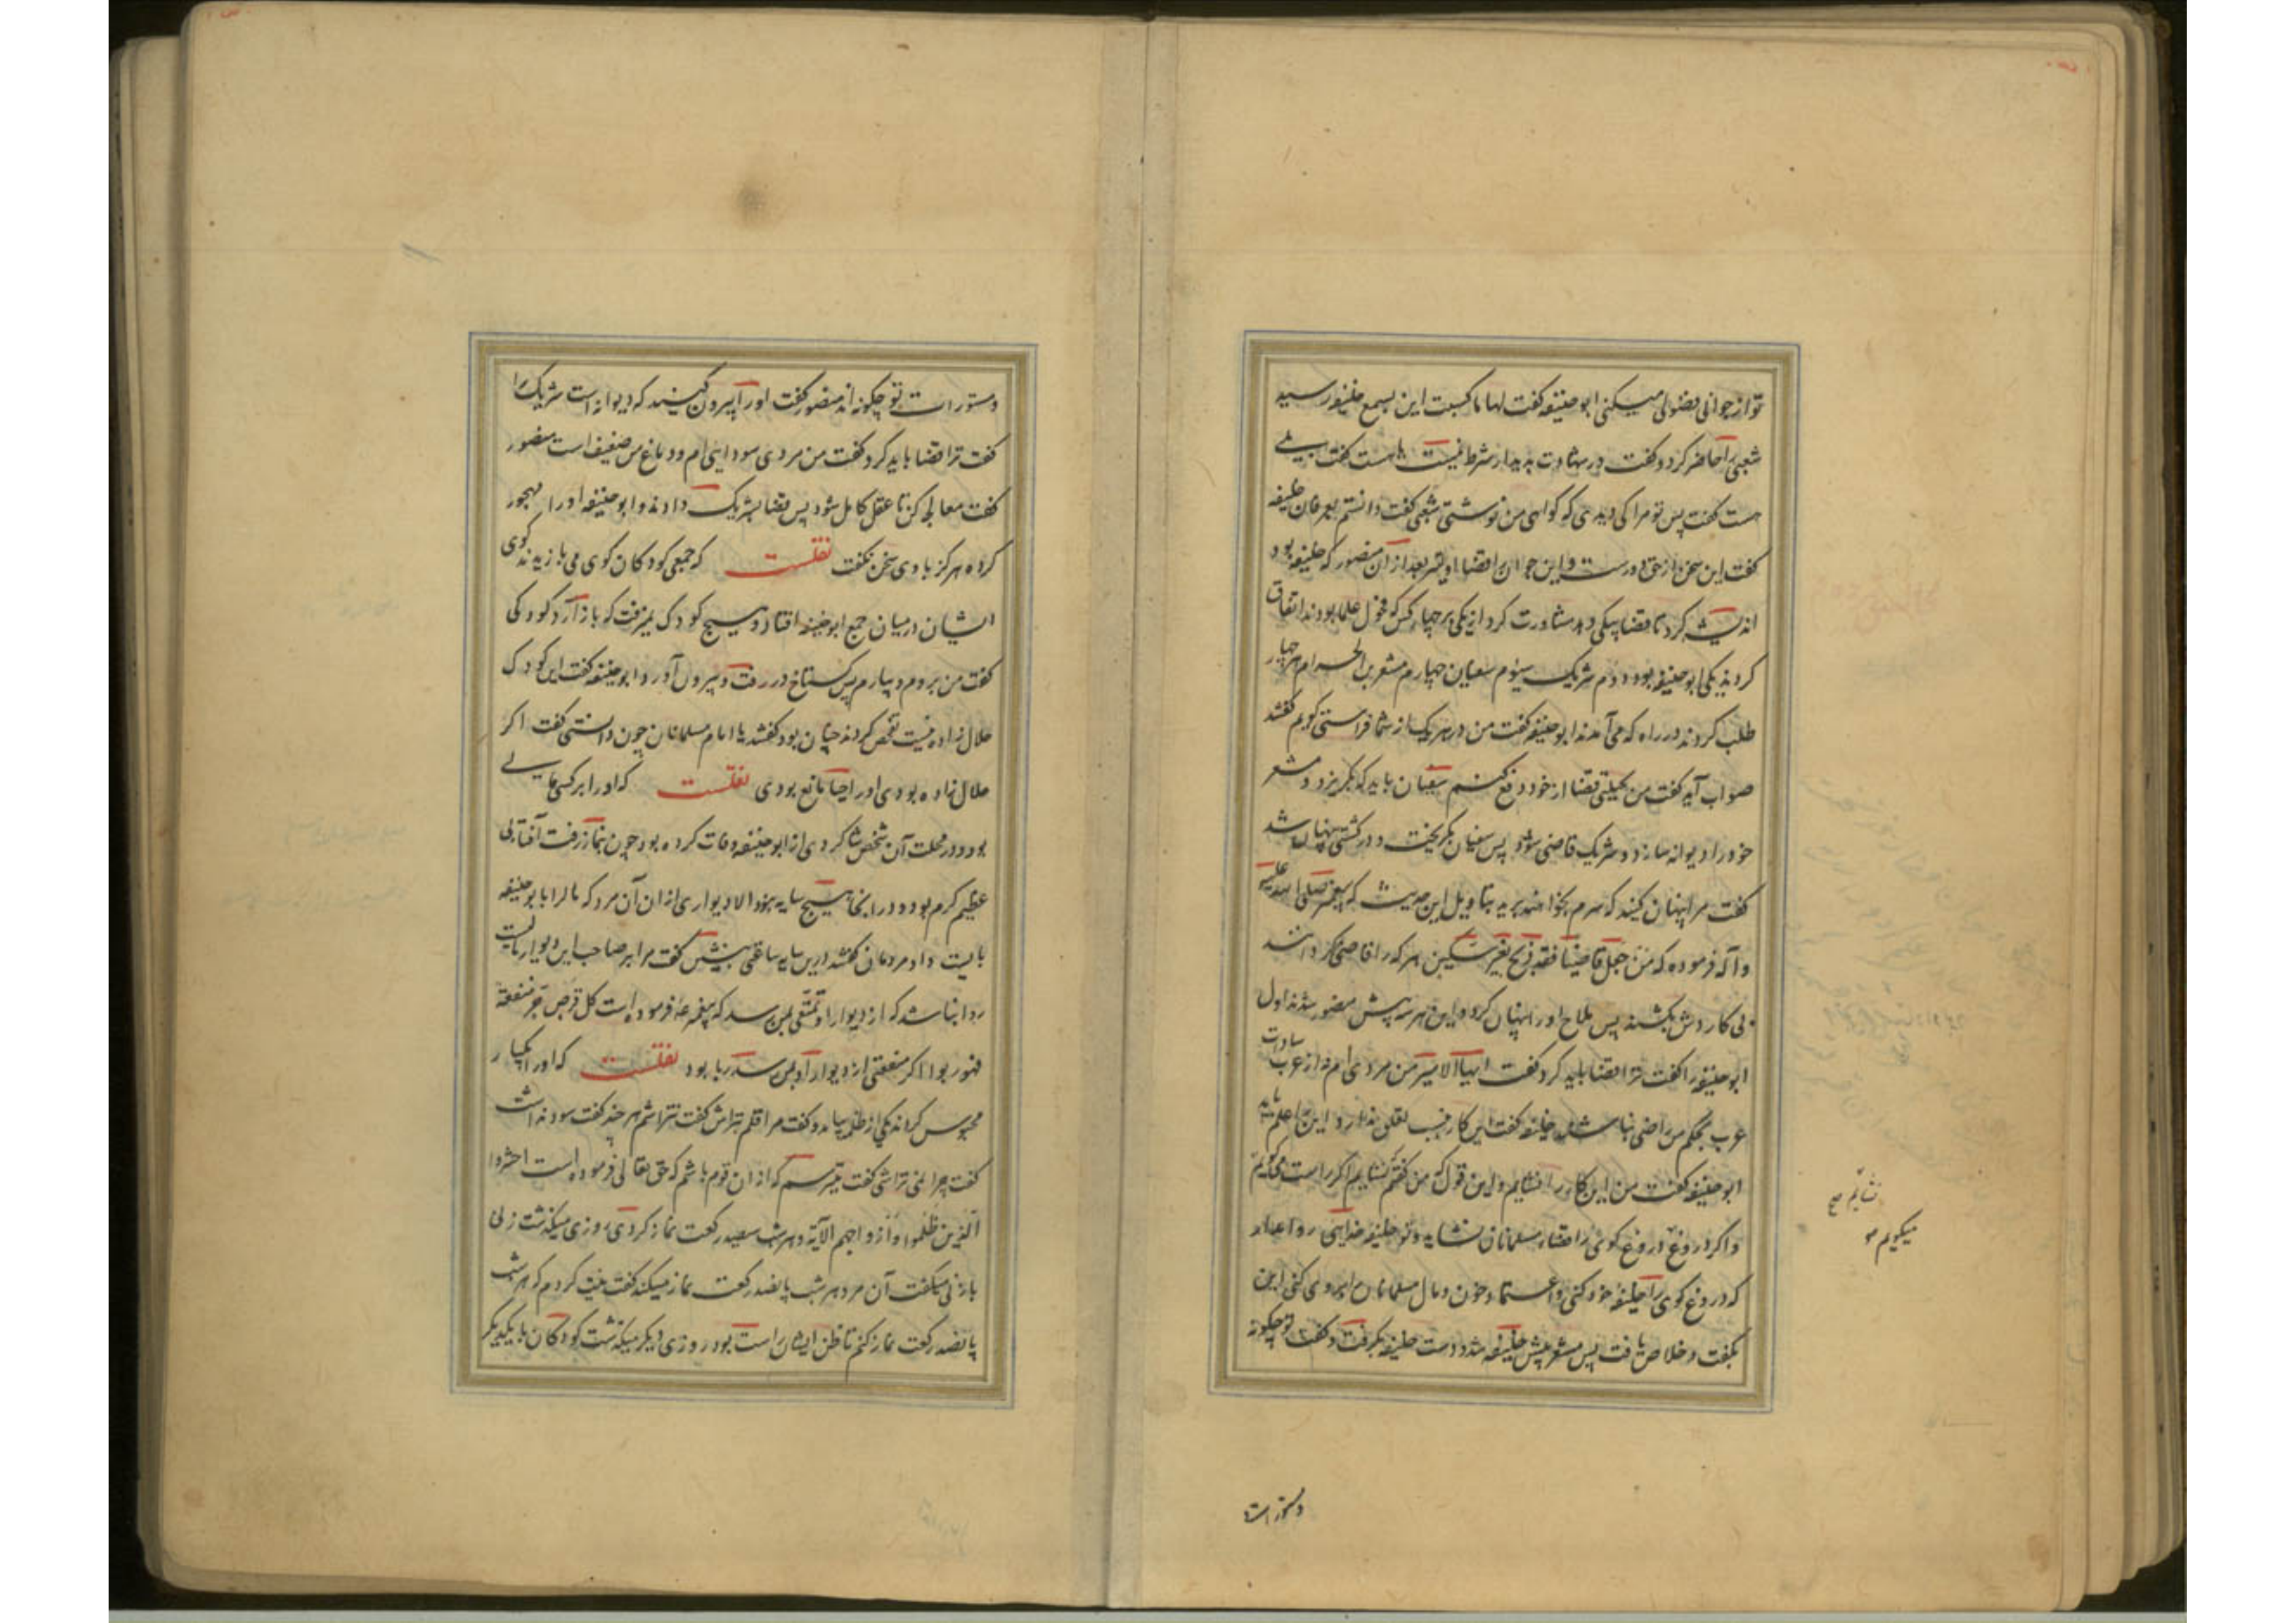 تو از جوانی فضولی میکنی ابو حنیفه گفت لها ما کسبت این بسمع خلیفه رسید
شعبی را حاضر کرد و گفت در شهادت دیدار شرط نیست یا هست گفت بلی
هست گفت پس تو مرا کی دیدی که گواهی من نوشتی شعبی گفت دانستم بفرمان خلیفه
گفت این سخن از حق دورست و این جوان قضا را اولیتر بعد از آن منصور که خلیفه بود
اندیشه کرد تا قضا بیکی دهد مشاورت کرد از یکی بر چهار کس که فحول علما بودند اتفاق
کردند یکی ابو حنیفه بود دوم شریک سیوم سفیان چهارم مشعر بن الحرام هر چهار
طلب کردند در راه که می آمدند ابو حنیفه گفت من در هر یک از شما فراستی گویم گفتند
صواب آید گفت من بحیلتی قضا از خود دفع کنم سفیان باید که بگریزد و مشعر
خود را دیوانه سازد و شریک قاضی شود پس سفیان بگریخت و در کشتی پنهان شد
گفت مرا پنهان کنید که سرم بخواهند برید بتاویل این حدیث که پیغمبر صلی الله علیه
وآله فرموده که من جعل قاضیا فقد ذبح بغیر سکین هر که را قاضی گردانند
بی کاردش بکشند پس ملاح او را پنهان کرد و این هر سه پیش منصور شدند اول
ابو حنیفه را گفت ترا قضا باید کرد گفت ایها الامیر من مردی ام نه از عرب سادات
عرب بحکم من راضی نباشند خلیفه گفت این کار بنسب تعلق ندارد این را علم باید
ابو حنیفه گفت من این کار را نشایم و این قول که من گفتم نشایم اگر راست میگویم
و اگر دروغ دروغ گوی را قضاء مسلمانان نشاید و تو خلیفه خدایی روا مدار
که دروغ گوی را خلیفه خود کنی و اعتماد خون و مال مسلمانان بر وی کنی این
بگفت و خلاص یافت پس مشعر پیش خلیفه شد و دست خلیفه بگرفت و گفت تو چگونه
نشایم صح
میگویم
و ستورات
و ستورات تو چگونه اند منصور گفت او را بیرون کنید که دیوانه است شریک را
گفت ترا قضا باید کرد گفت من مردی سودایی ام و دماغ من ضعیف است منصور
گفت معالجه کن تا عقل کامل شود پس قضا بشریک دادند و ابو حنیفه او را مهجور
کرده هرگز با وی سخن نگفت نقلست که جمعی کودکان گوی می بازیدند گوی
ایشان در میان جمع ابو حنیفه افتاد و هیچ کودک نمیرفت که باز آرد کودکی
گفت من بروم و بیارم پس گستاخ در رفت و بیرون آورد ابو حنیفه گفت این کودک
حلال زاده نیست تفحص کردند چنان بود گفتند یا امام مسلمانان چون دانستی گفت اگر
حلال زاده بودی او را حیا مانع بودی نقلست که او را بر کسی مالی
بود و در محلت آن شخص شاگردی از ابو حنیفه وفات کرده بود چون بنماز رفت آفتابی
عظیم گرم بود و در انجا هیچ سایه نبود الا دیواری از ان آن مرد که مال را بابو حنیفه
بایست داد مردمان گفتند درین سایه ساعتی بنشین گفت مرا بر صاحب این دیوار مالیست
روا نباشد که از دیوار او تمتعی بمن رسد که پیغمبر عم فرموده است کل قرض جر منفعة
فهو ربوا اگر منفعتی از دیوار او بمن رسد ربا بود نقلست که او را یکبار
محبوس کردند یکی از ظلمه بیامد و گفت مرا قلم بتراش گفت نتراشم هر چند گفت سود نداشت
گفت چرا نمی تراشی گفت میترسم که از ان قوم باشم که حق تعالی فرموده است احشروا
الذین ظلموا و ازواجهم الآیة و هر شب سیصد رکعت نماز کردی روزی میگذشت زنی
با زنی میگفت آن مرد هر شب پانصد رکعت نماز میکند گفت نیت کردم که هر شب
پانصد رکعت نماز کنم تا ظن ایشان راست بود روزی دیگر میگذشت کودکان با یکدیگر